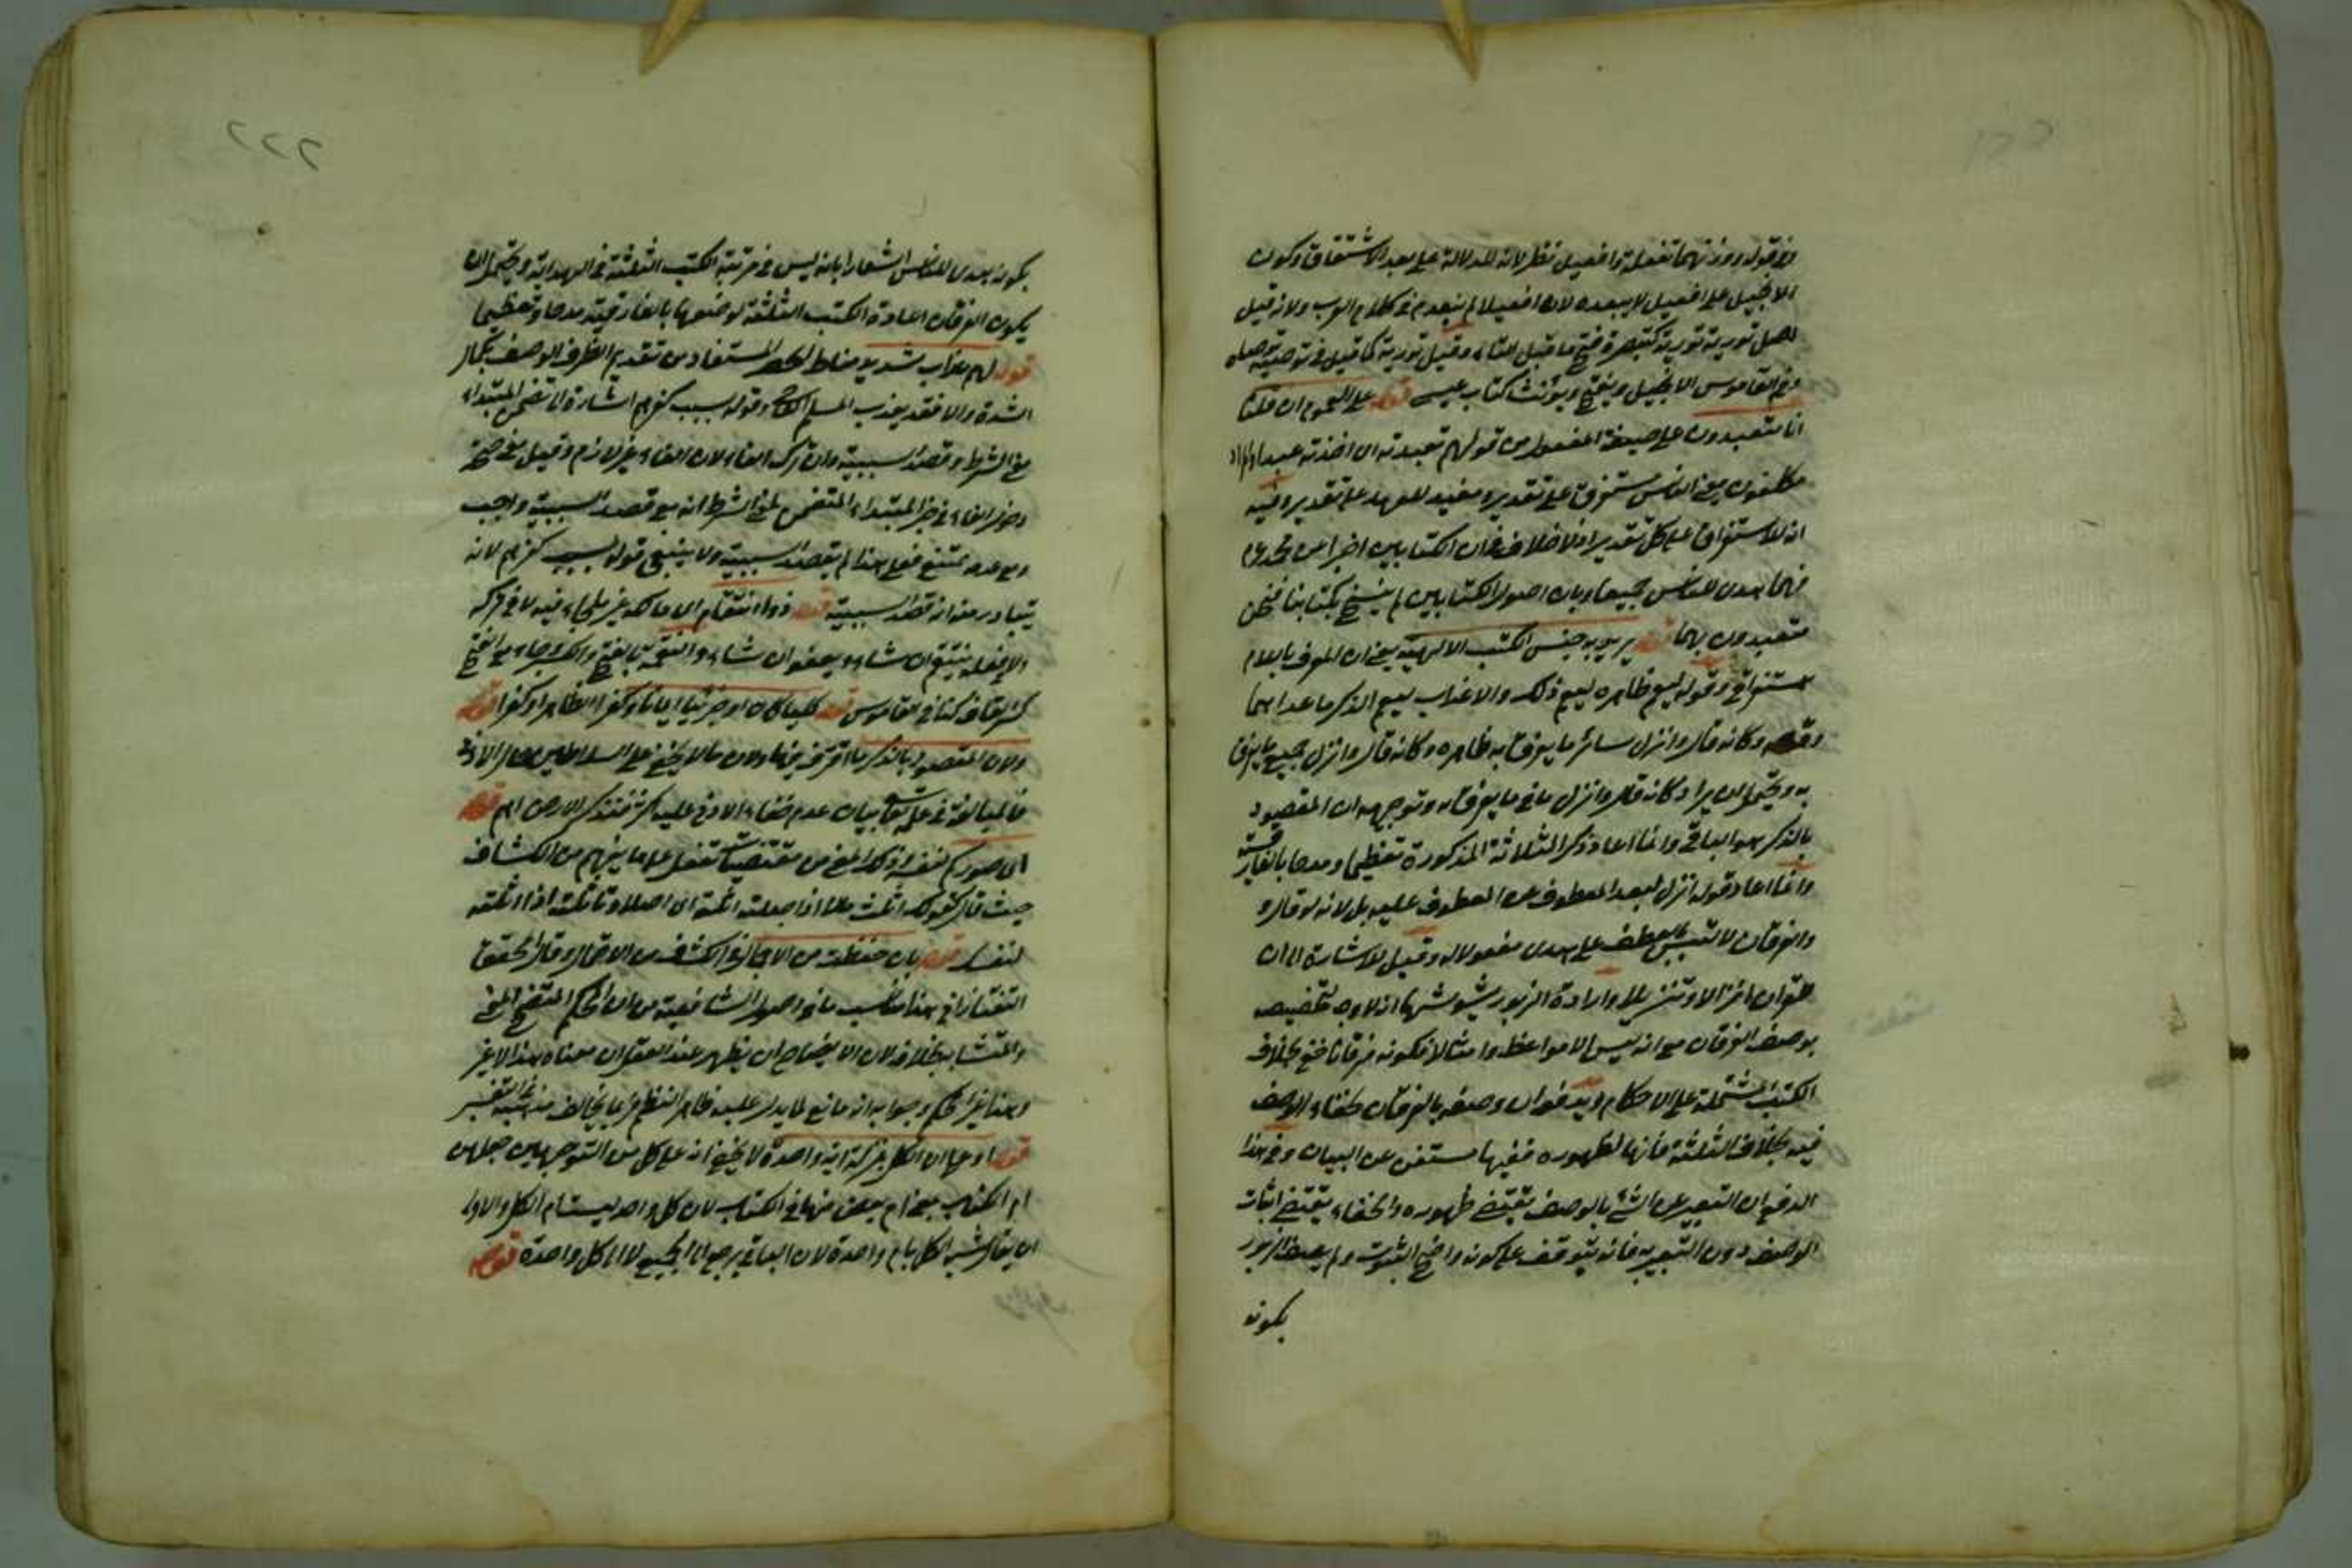 في قوله ووزنهما تفعلة وافعيل نظر لانه للدلالة على بعد الاشتقاق وكون
الانجيل على افعيل لا يبعده لان افعيلا لم ينعدم في كلام العرب ولانه قيل
اصل تورية تورية كتبصرة فتح ما قبل الياء وقيل تورية كما قيل في توصية توصاه
وفي القاموس الانجيل ويفتح ويؤنث كتاب عيسى قوله على العموم ان قلنا
انا متعبدون على صيغة المفعول من قولهم تعبدته اي اخذته عبدا
مكلفون يعني الناس مستغرق على تقدير ومفيد للعهد على تقدير وفيه
انه للاستغراق على كل تقدير اذ لا خلاف في ان الكتابين اخبرا عن محمد
فهما هدى للناس جميعا وبان اصول الكتابين لم ينسخ بكتابنا فنحن
متعبدون بهما قوله يريد به جنس الكتب الالهية يعني ان المعرف باللام
استغراقي وقوله ليعم ظاهره ليعم ذلك والاغذاب ليعم الذكر ما عداهما
وكانه قال وانزل سائر ما يفرق به ظاهره وكانه قال وانزل جميع ما يفرق
به ويحتمل ان يراد كانه قال وانزل باقي ما يفرق به وتوجيهه ان المقصود
بالذكر هو الباقي وانما اعاد ذكر الثلاثة المذكورة تعظيما ومدحا بالفارقية
وانما اعاد قوله انزل لبعد المعطوف عن المعطوف عليه بل لانه لو قال و
والفرقان لالتبس بالعطف على هدى مفعولا له وقيل للاشارة الى ان
للقرآن انزالا وتنزيلا وارادة الزبور يشوشها انه لا وجه لتخصيصه
بوصف الفرقان مع انه ليس الا مواعظ وامثالا فكونه فرقانا خفي بخلاف
الكتب المشتملة على الاحكام ويدفع ان وصفه بالفرقان لخفاء الوصف
فيه بخلاف الثلثة فانها لظهوره فيها مستغن عن البيان وفي هذا
الدفع ان التعبير عن الشيء بالوصف يقتضي ظهوره والخفاء يقتضي اثبات
الوصف دون التعبير به فانه يتوقف على كونه واضح الثبوت ولم يصف الزبور
بكونه
بكونه هدى للناس اشعارا بانه ليس في مرتبة الكتب الثلثة في الهداية ويحتمل ان
يكون الفرقان اعادة الكتب الثلثة لوضعها بالفارقية مدحا وتعظيما
قوله لهم عذاب شديد مناط الحصر المستفاد من تقديم الظرف الوصف بكمال
الشدة والا فقد يعذب المسلم وقوله بسبب كفرهم اشارة الى تضمن المبتداء
معنى الشرط وقصد السببية وان ترك الفاء لان الفاء غير لازم وقيل معنى صحة
دخول الفاء في خبر المبتداء المتضمن لمعنى الشرط انه مع قصد السببية واجب
ومع عدمه ممتنع فعلى هذا لم يقصد السببية ولا ينبغي قوله بسبب كفرهم لانه
يتبادر منه انه قصد السببية قوله ذو انتقام اي مالكه غير ملجاء فيه لا في تركه
والا فعله ينتقم ان شاء ويعفو ان شاء والنقمة بالفتح والكسر وجاء مع الفتح
كسر القاف كذا في القاموس قوله كليا كان او جزئيا ايمانا وكفرا الظاهر او كفرا قوله
ولان المقصود بالذكر ما اقترف فيها ولان مما لا يخفى على السلاطين
فالمبالغة في علمه تعالى بيان عدم خفاء الادنى عليه اكثر فتذكر الارض اهم قوله
اي صوركم لنفسه وذكر المعنى من مقتضيات تفعل على ما يفهم من الكشاف
حيث قال كقولك اثلت مالا اذا جعلته اثلة اي اصلا وتاثلته اذا اثلته
لنفسك قوله بان حفظت من الاجمال في الكشف من الاحتمال وقال المحقق
التفتازاني هذا مناسب ما في اصول الشافعية من ان المحكم المتضح المعنى
والمتشابه بخلافه لان الايضاح ان يظهر عند العقل ان معناه هذا لا غير
وهذا غير محكم وجوابه انه مانع لما يدل عليه ظاهر النظم فربما يخالف
قوله او على ان الكل بمنزلة اية واحدة لا يخفى انه على كل من التوجيهين جعلهن
ام الكتاب يعني ام بعض منها في الكتاب لان كل واحد ليست ام الكل والاولى
ان يقال شبه الكل بام واحدة لان الباقي يرجع الى الجميع لا الى كل واحدة قوله